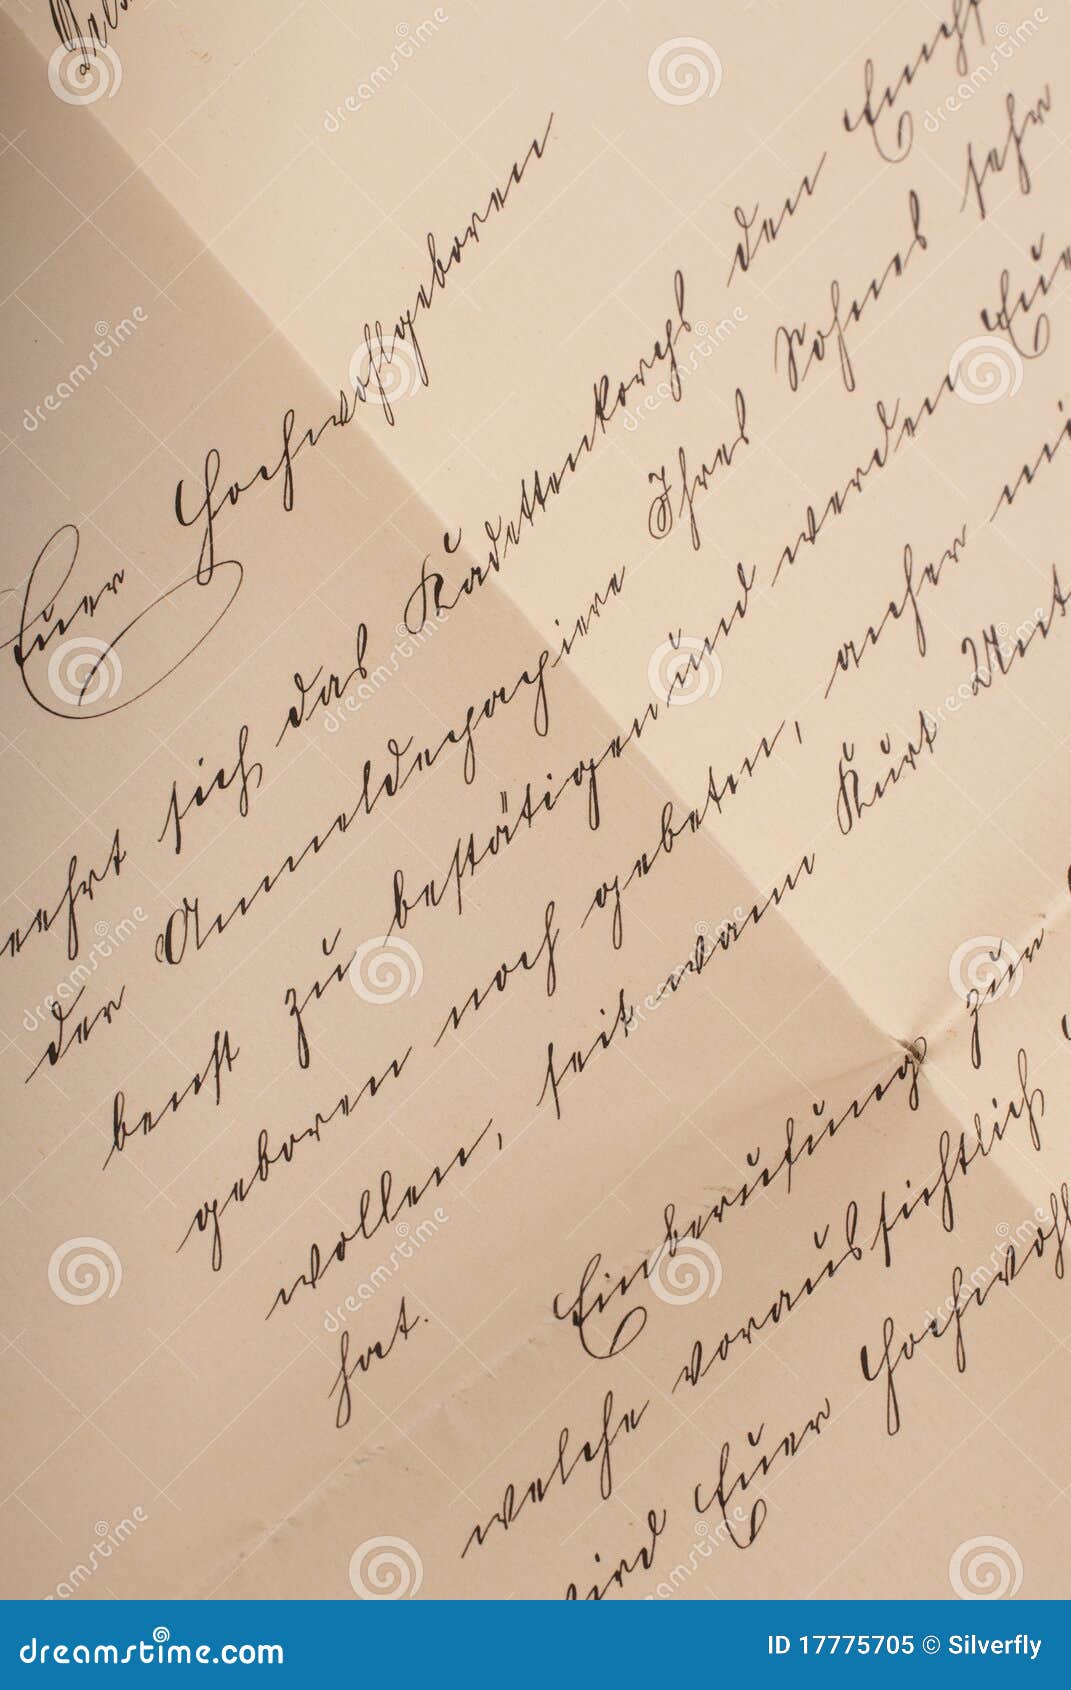 Euer Hochwohlgeboren
beehrt sich das Kadettenkorps den Empf
der Anmeldepapiere Ihres Sohnes sehr
benst zu bestätigen und werden Eue
geboren noch gebeten, anher mi
wollen, seit wann Kurt Unt
hat.
Einberufung zur
welche voraussichtlich
wird Euer Hochwohl
dreamstime.com
ID 17775705 © Silverfly